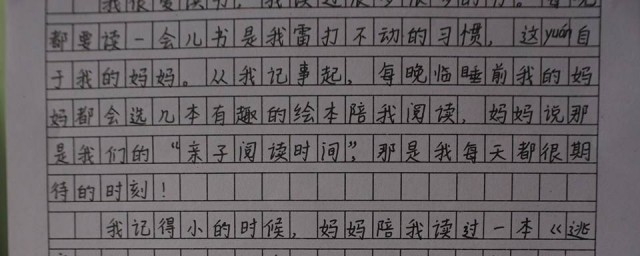 我很爱读书，我读过很多很多的书。每晚
都要读一会儿书是我雷打不动的习惯，这yuán自
于我的妈妈。从我记事起，每晚临睡前我的妈
妈都会选几本有趣的绘本陪我阅读，妈妈说那
是我们的“亲子阅读时间”，那是我每天都很期
待的时刻！
我记得小的时候，妈妈陪我读过一本《逃